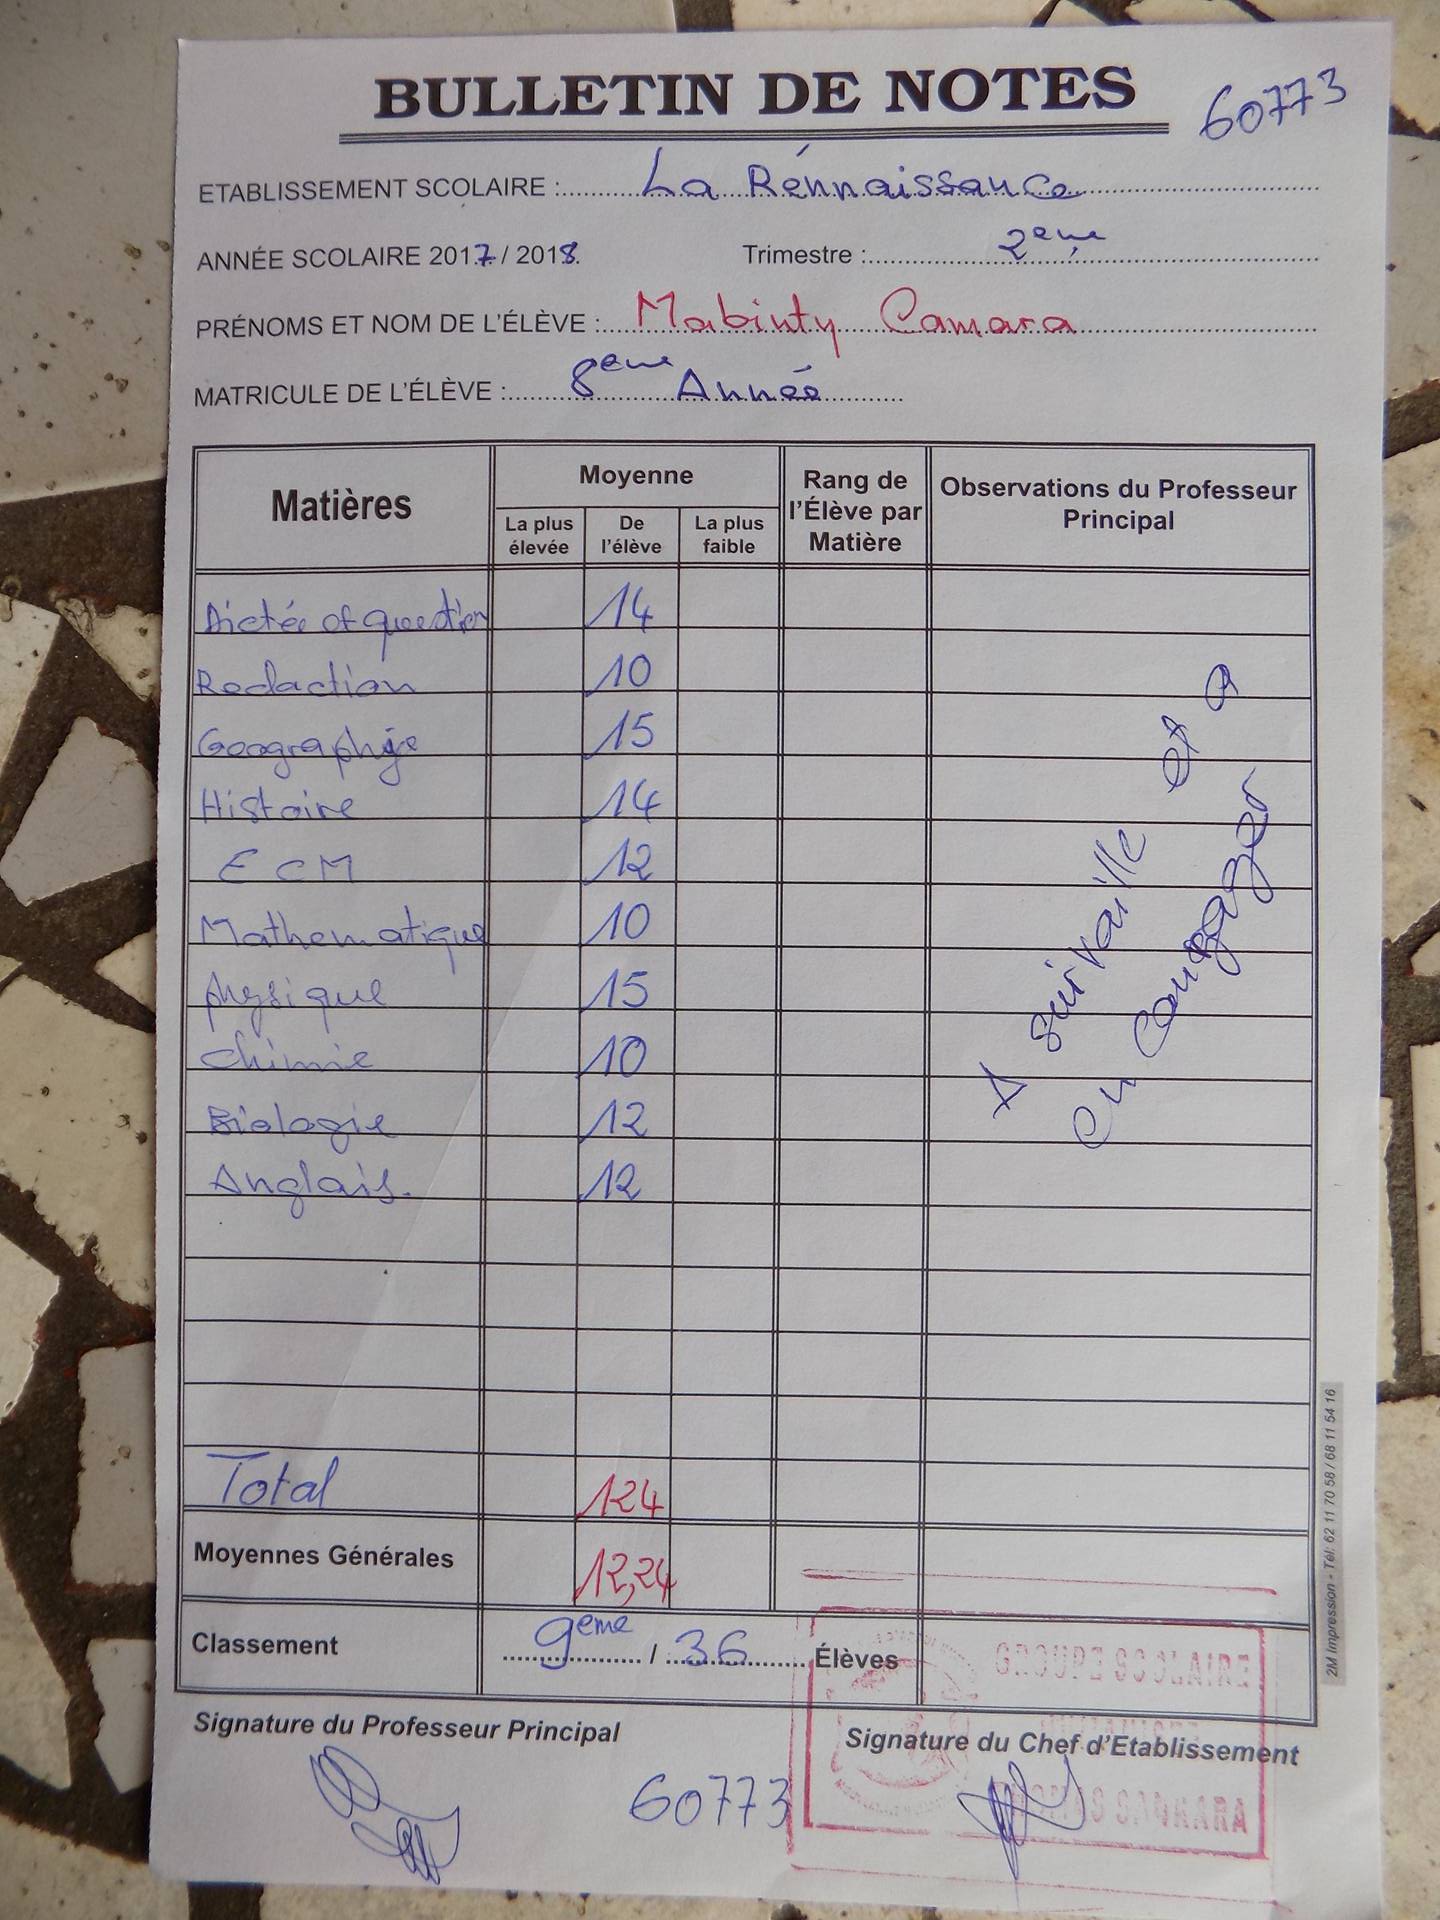 BULLETIN DE NOTES
60773
ETABLISSEMENT SCOLAIRE : La Rénnaissance
ANNÉE SCOLAIRE 2017 / 2018 Trimestre : 2eme
PRÉNOMS ET NOM DE L'ÉLÈVE : Mabinty Camara
MATRICULE DE L'ÉLÈVE : 8eme Année
Matières Moyenne Rang de l'Élève par Matière Observations du Professeur Principal
La plus élevée De l'élève La plus faible
Dictée et question 14
Redaction 10
Geographie 15
Histoire 14
ECM 12
Mathematique 10
physique 15
chimie 10
Biologie 12
Anglais. 12
A suivaille et a
en couragzer
Total 124
Moyennes Générales 12,24
Classement 9eme / 36 Élèves
Signature du Professeur Principal Signature du Chef d'Etablissement
60773
GROUPE SCOLAIRE
SANKARA
2M Impression - Tél: 62 11 70 58 / 68 11 54 16